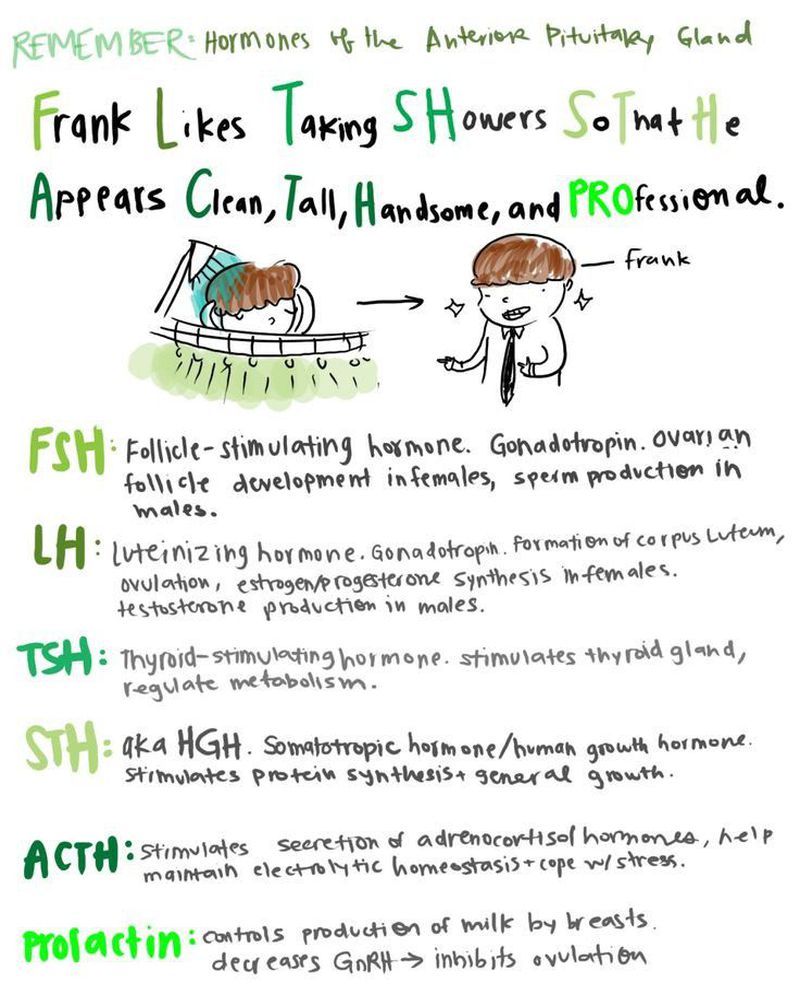 REMEMBER: Hormones of the Anterior Pituitary Gland
Frank Likes Taking SHowers SoThat He
Appears Clean, Tall, Handsome, and PROfessional.
Frank
FSH: Follicle-stimulating hormone. Gonadotropin. Ovarian
follicle development in females, sperm production in
males.
LH: Luteinizing hormone. Gonadotropin. Formation of corpus luteum,
ovulation, estrogen/progesterone synthesis in females.
testosterone production in males.
TSH: Thyroid-stimulating hormone. stimulates thyroid gland,
regulate metabolism.
STH: aka HGH. Somatotropic hormone/human growth hormone.
Stimulates protein synthesis + general growth.
ACTH: Stimulates secretion of adrenocortisol hormones, help
maintain electrolytic homeostasis + cope w/ stress.
Prolactin: controls production of milk by breasts.
decreases GnRH → inhibits ovulation